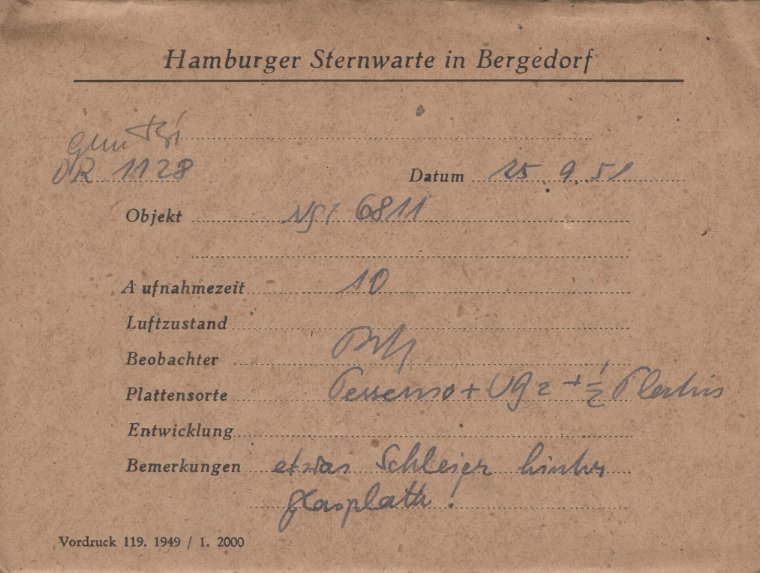 Hamburger Sternwarte in Bergedorf
DR 1128
Datum 25. 9. 51
Objekt 6811
Aufnahmezeit 10
Luftzustand
Beobachter
Plattensorte + UG 2 + 1/2
Entwicklung
Bemerkungen etwas Schleier hinter
Glasplatte!
Vordruck 119. 1949 / 1. 2000